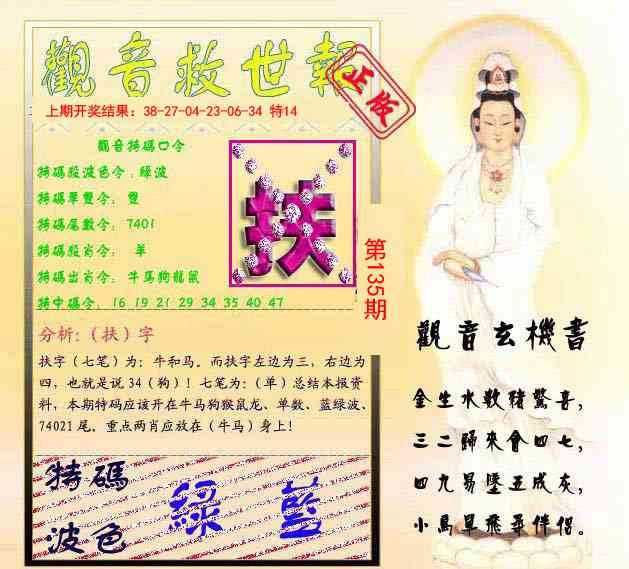 觀音救世報
正版
上期开奖结果：38-27-04-23-06-34 特14
觀音特碼口令
特碼段波色令：綠波
特碼單雙令：雙
特碼尾數令：7401
特碼段肖令：單
特碼出肖令：牛马狗龍鼠
特中碼令：16 19 21 29 34 35 40 47
扶
第135期
分析:（扶）字
扶字（七笔）为：牛和马。而扶字左边为三，右边为
四，也就是说34（狗）！七笔为：（单）总结本报资
料，本期特码应该开在牛马狗猴鼠龙、单数、蓝绿波、
74021尾。重点两肖应放在（牛马）身上！
特碼
波色
綠 藍
觀音玄機書
金生水數豬驚喜,
三二歸來會四七,
四九易墜五成灰,
小鳥單飛尋伴侶。